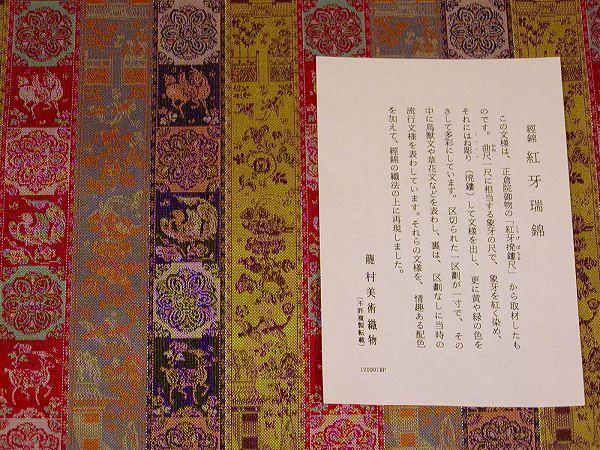 經錦 紅牙瑞錦
この文様は、正倉院御物の「紅牙撥鏤尺」から取材したも
のです。曲尺一尺に相当する象牙の尺で、象牙を紅く染め、
それにはね彫り（撥鏤）して文様を出し、更に黄や緑の色を
さして多彩にしています。区切られた一区劃が一寸で、その
中に鳥獣文や草花文などを表わし、裏は、区劃なしに当時の
流行文様を表わしています。それらの文様を、情趣ある配色
を加えて、經錦の織法の上に再現しました。
龍村美術織物
（不許複製転載）
120901RP